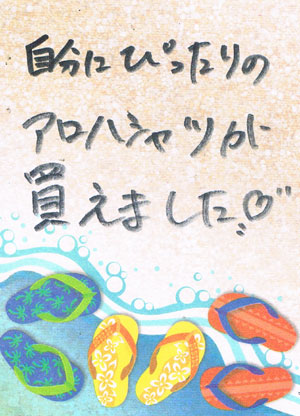 自分にぴったりの
アロハシャツが
買えました♡"